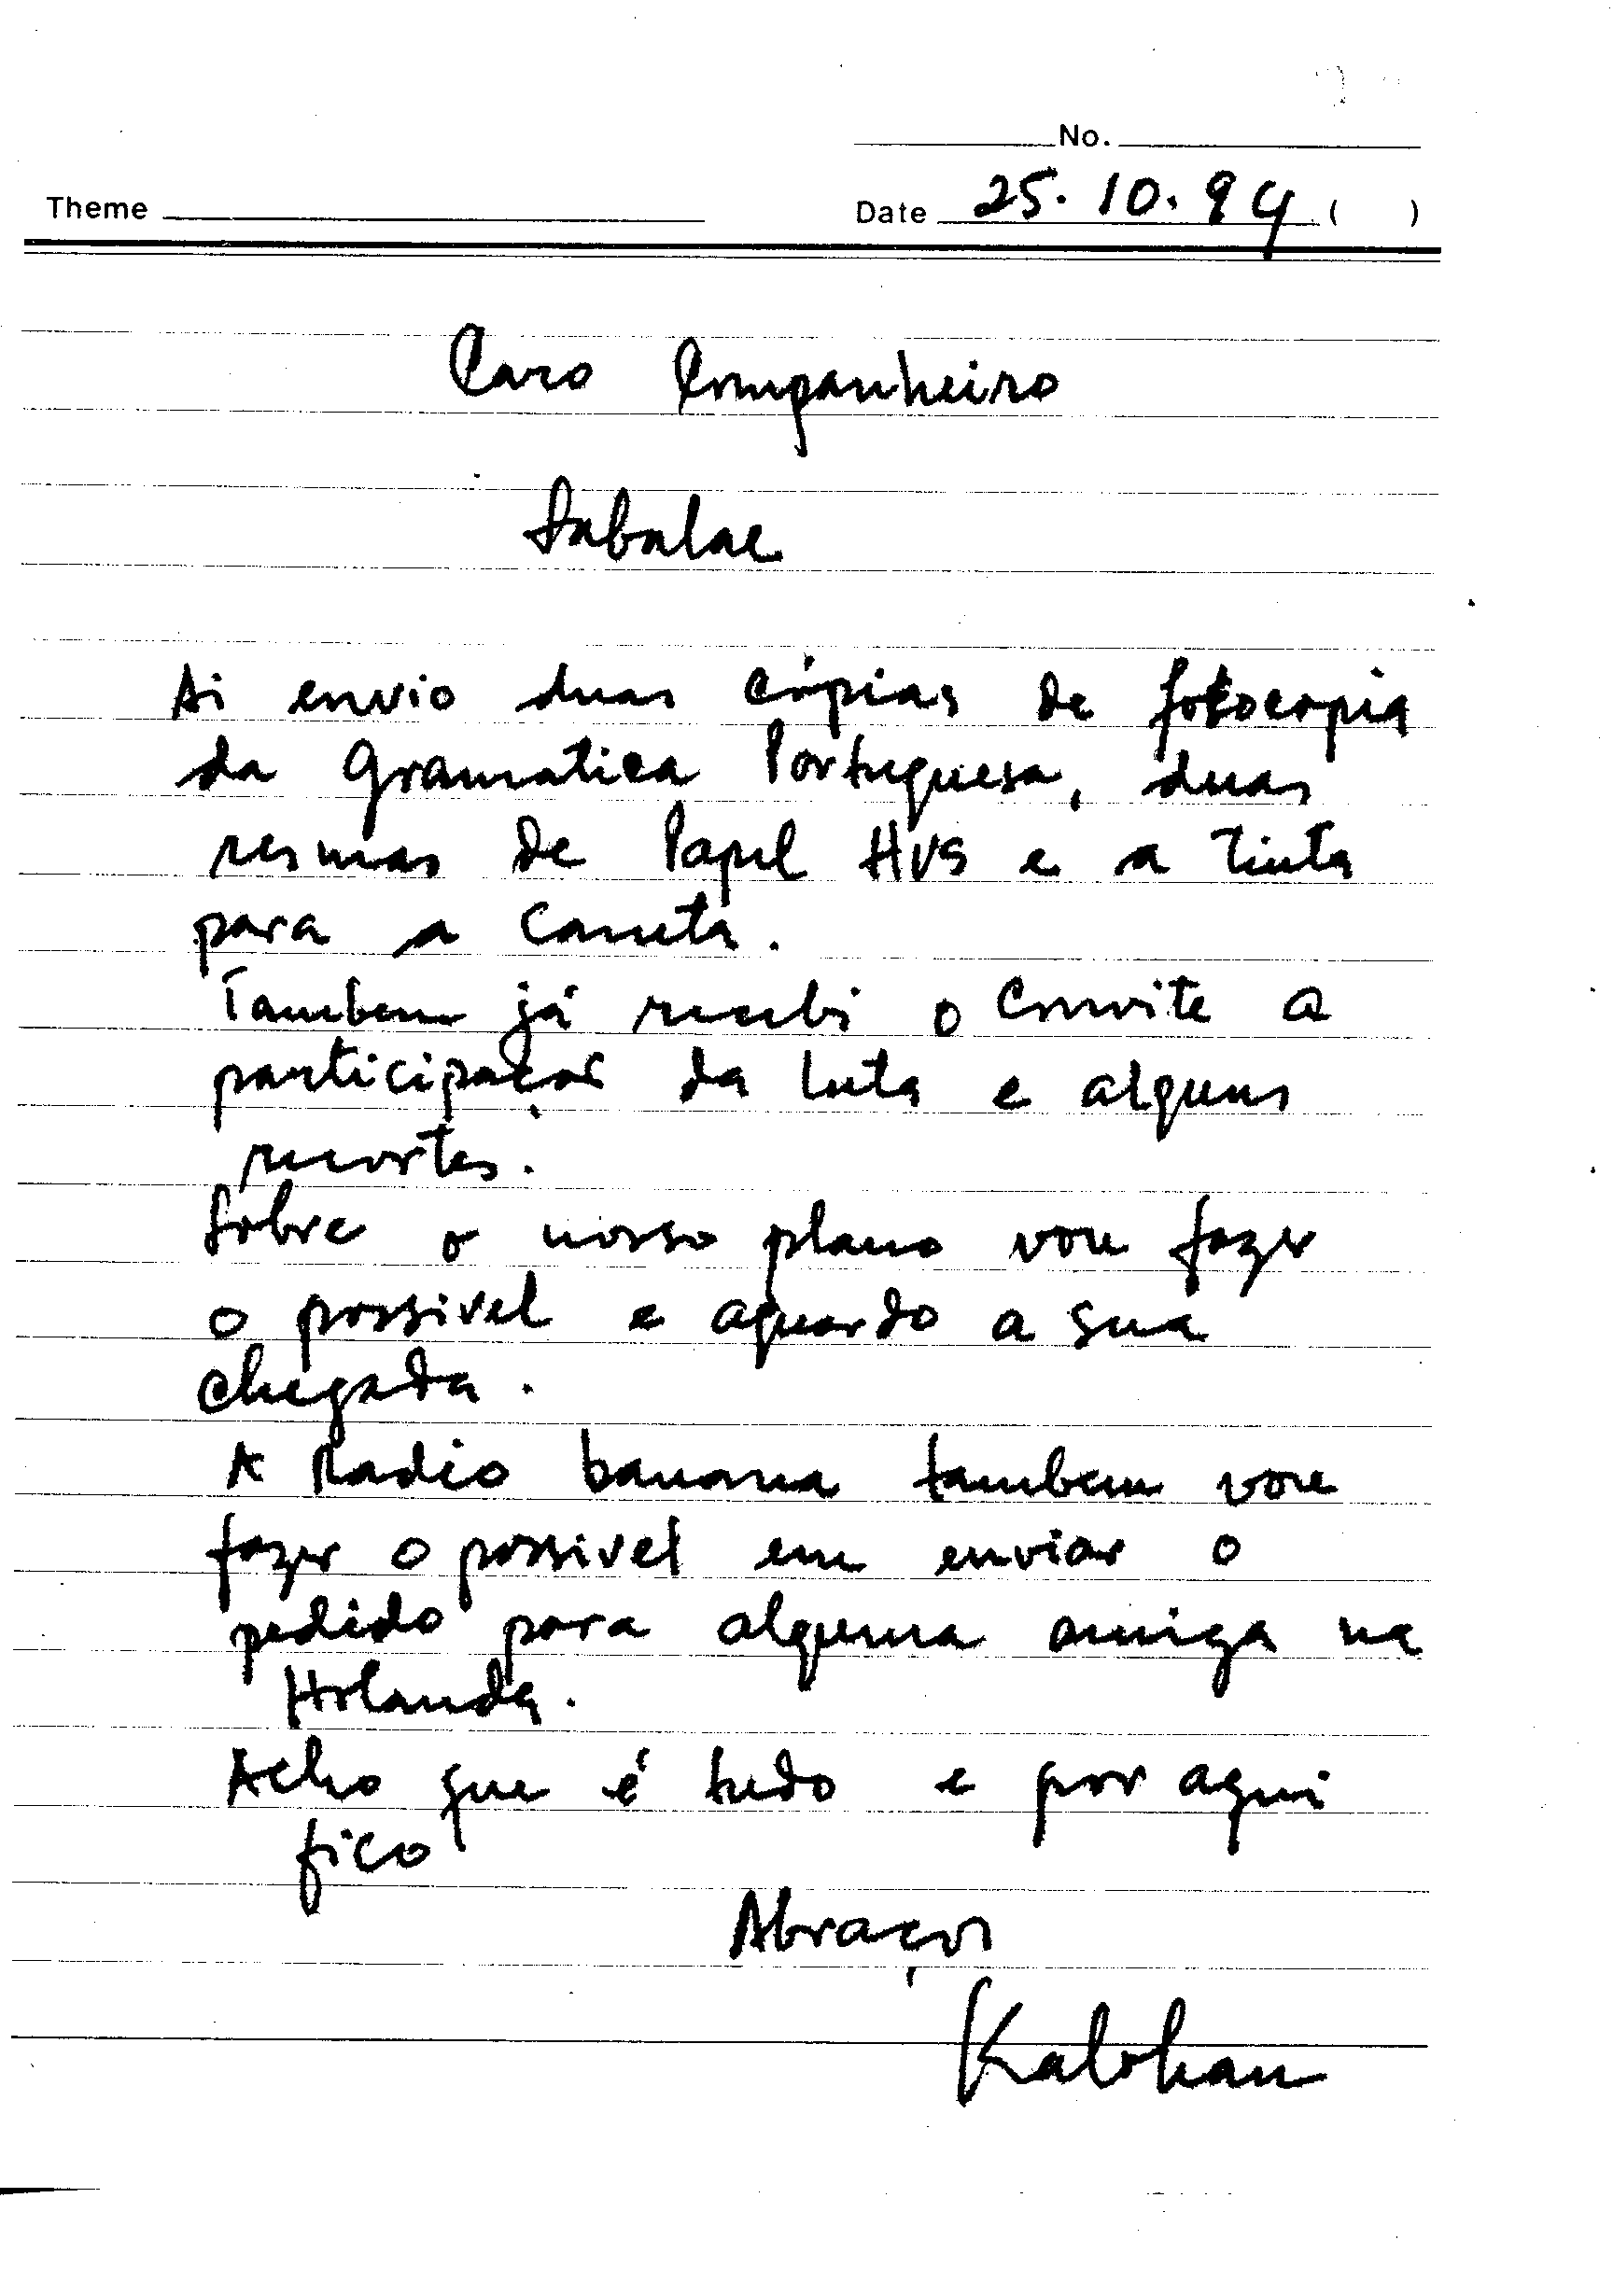 No.
Theme Date 25.10.94 ( )
Caro Companheiro
Sabalae
Ai envio duas cópias de fotocopia
da Gramatica Portuguesa, duas
resmas de Papel HVS e a Tinta
para a Caneta.
Tambem já recebi o Convite a
participaçao da luta e alguns
recortes.
Sobre o nosso plano vou fazer
o possivel e aguardo a sua
chegada.
A Radio banana tambem vou
fazer o possivel em enviar o
pedido para alguma amiga na
Holanda.
Acho que é tudo e por aqui
fico
Abraços
Kalohan